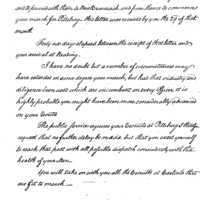 and proceed with them to Head ... and from thence to commence
your march for Pittsburg. this letter was received by you the 29 of that
month
Forty six days elapsed between the receipt of that letter and
you arrived at Reading.
I have no doubt but a number of circumstances may
have retarded in some degree your march, but had that industry and
diligence been used which are incumbent on every officer, it is
highly probable you might have been more considerably advanced
on your Route
The public service requires your Recruits at Pittsburg I therefore
request that no further delay be made but that you exert yourself
to reach that post with all possible dispatch consistently with the
health of your Men.
You will take on with you all the Recruits at Carlisle that
are fit to march